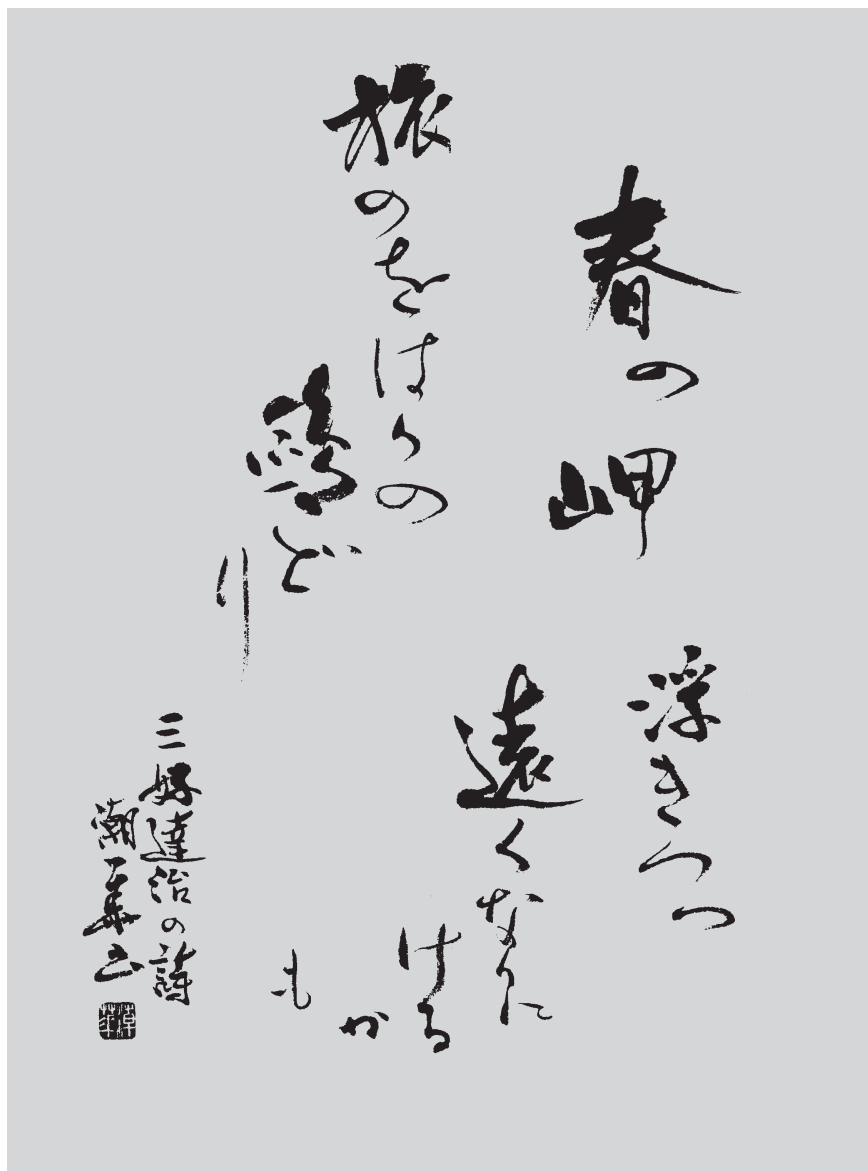 春の岬
旅のをはりの
鷗どり
浮きつつ
遠くなりに
ける
か
も
三好達治の詩
潮華書